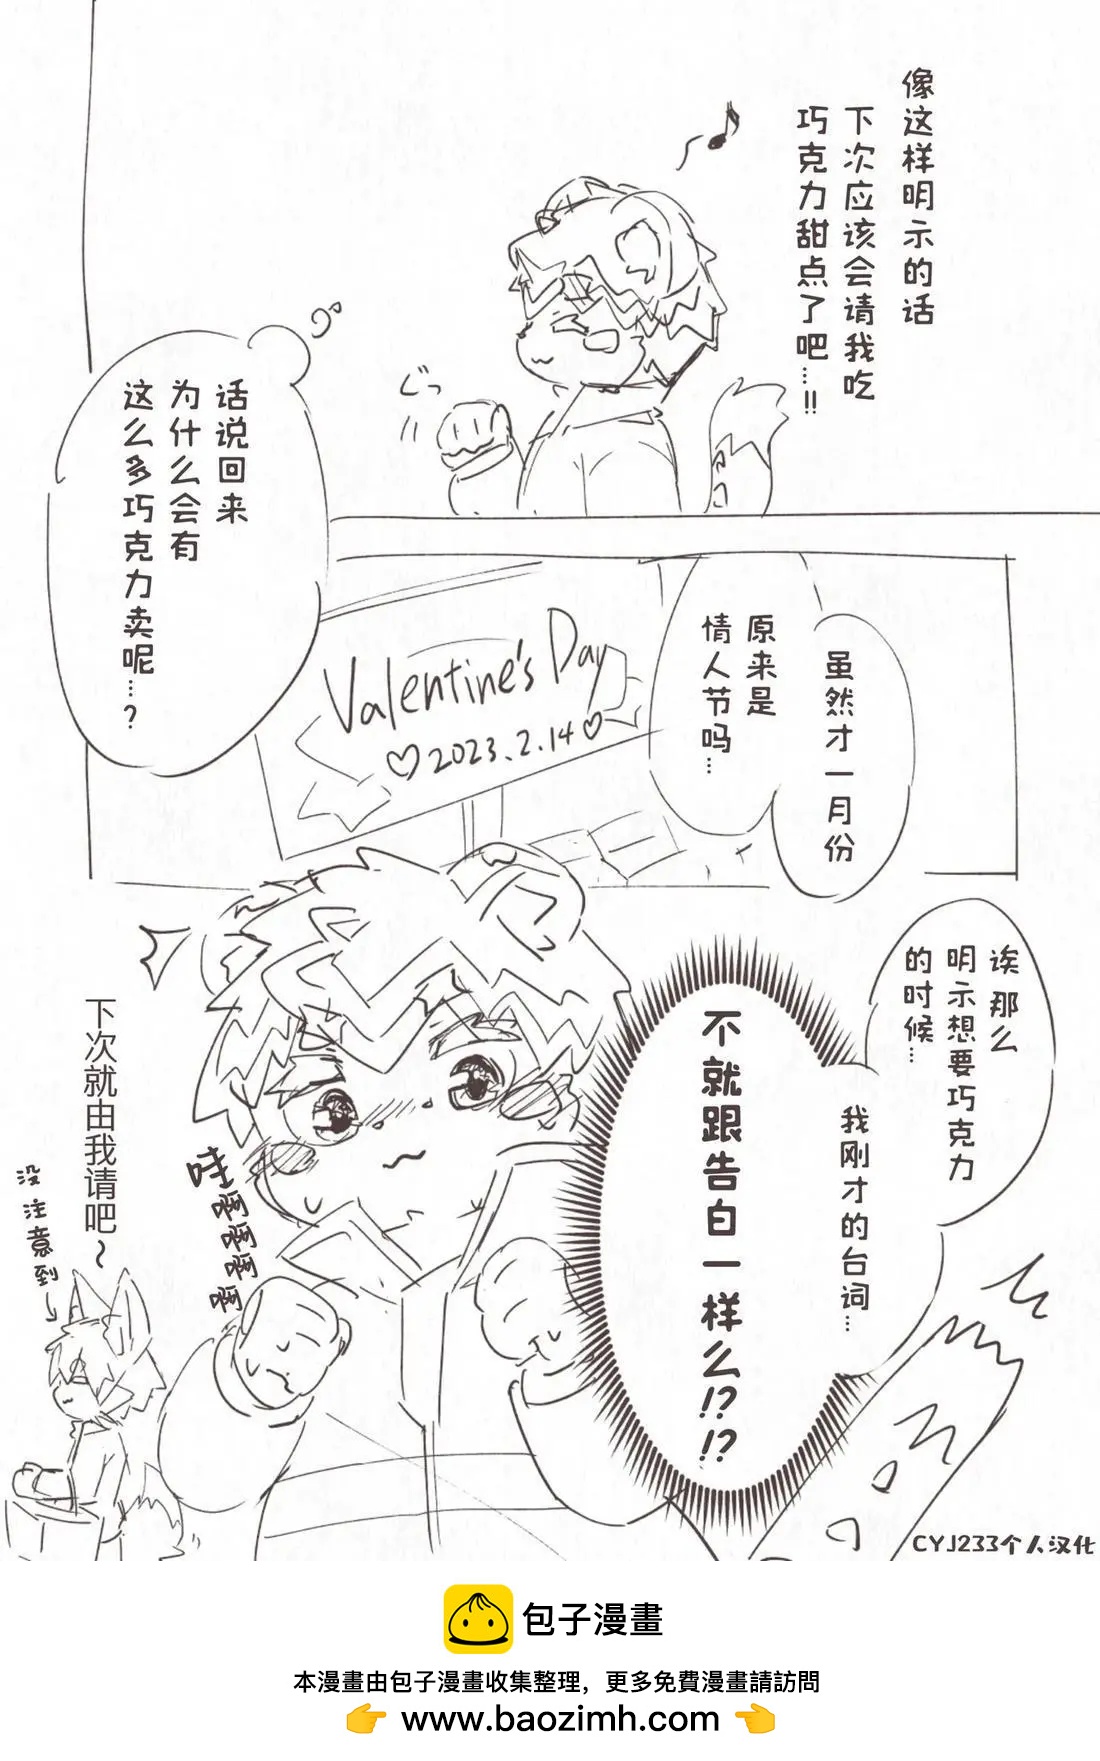 像这样明示的话
下次应该会请我吃
巧克力甜点了吧…!!
ぐっ
话说回来
为什么会有
这么多巧克力卖呢…?
虽然才一月份
原来是
情人节吗…
Valentine's Day
♡2023.2.14♡
诶 那么
明示想要巧克力
的时候…
我刚才的台词…
不就跟告白一样么!?!?
哇啊啊啊啊
下次就由我请吧~
没注意到
CYJ233个人汉化
包子漫畫
本漫畫由包子漫畫收集整理，更多免費漫畫請訪問
👉 www.baozimh.com 👈